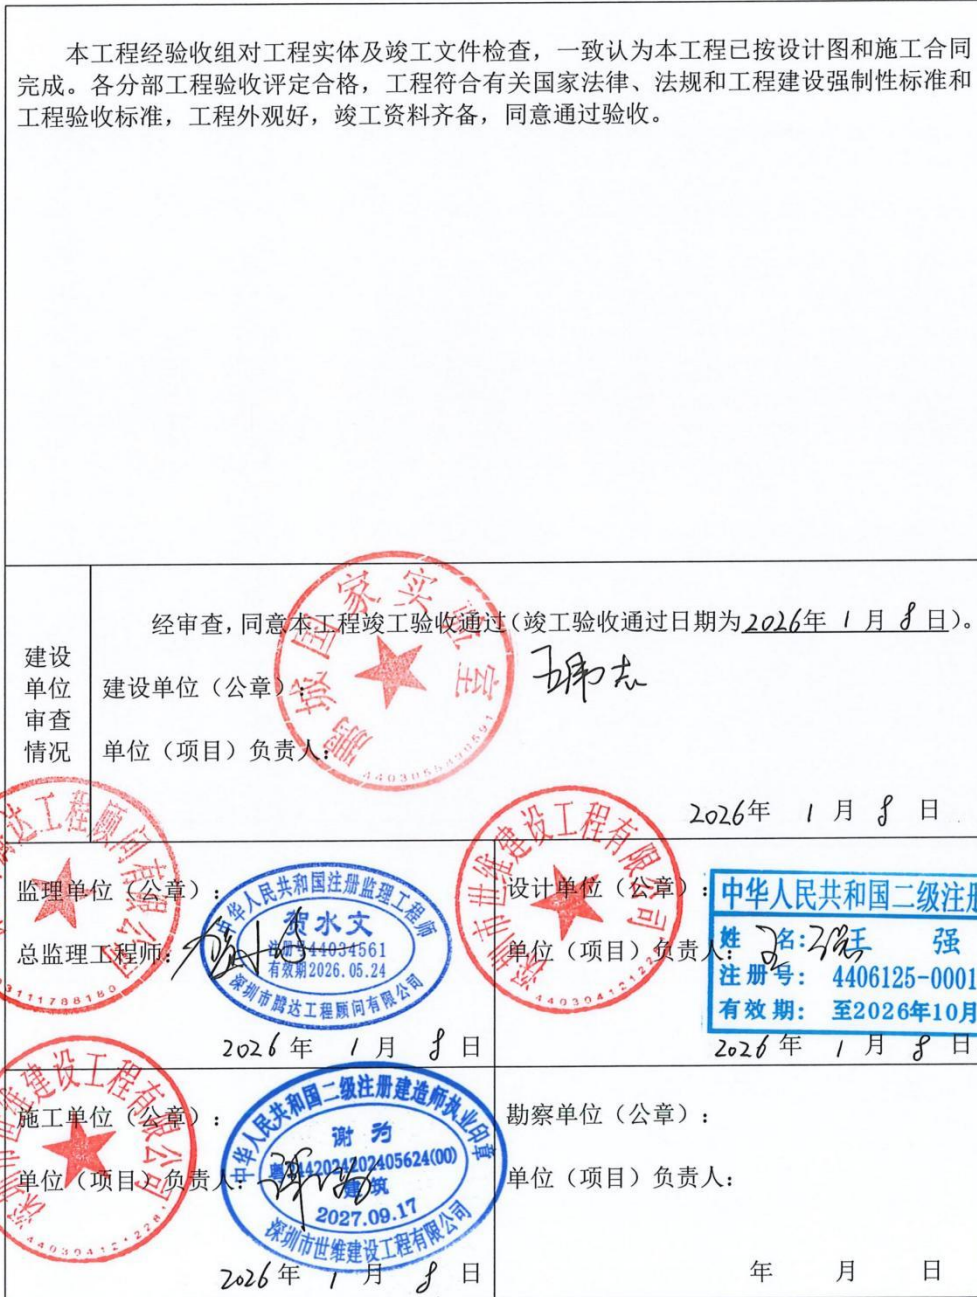 本工程经验收组对工程实体及竣工文件检查，一致认为本工程已按设计图和施工合同
完成。各分部工程验收评定合格，工程符合有关国家法律、法规和工程建设强制性标准和
工程验收标准，工程外观好，竣工资料齐备，同意通过验收。
建设
单位
审查
情况
经审查，同意本工程竣工验收通过（竣工验收通过日期为2026年 1 月 8 日）。
建设单位（公章）：
单位（项目）负责人：
鹏城国家实验室
2026年 1 月 8 日
监理单位（公章）：
总监理工程师：
达工程顾问有限公司
中华人民共和国注册监理工程师
贺水文
注册号44034561
有效期2026.05.24
深圳市腾达工程顾问有限公司
2026 年 1 月 8 日
设计单位（公章）：
单位（项目）负责人：
深圳市世维建设工程有限公司
中华人民共和国二级注册
姓 名：王 强
注册号： 4406125-0001
有效期： 至2026年10月
2026 年 1 月 8 日
施工单位（公章）：
单位（项目）负责人：
深圳市世维建设工程有限公司
中华人民共和国二级注册建造师执业印章
谢为
粤2442024202405624(00)
建筑
2027.09.17
深圳市世维建设工程有限公司
2026 年 1 月 8 日
勘察单位（公章）：
单位（项目）负责人：
年 月 日